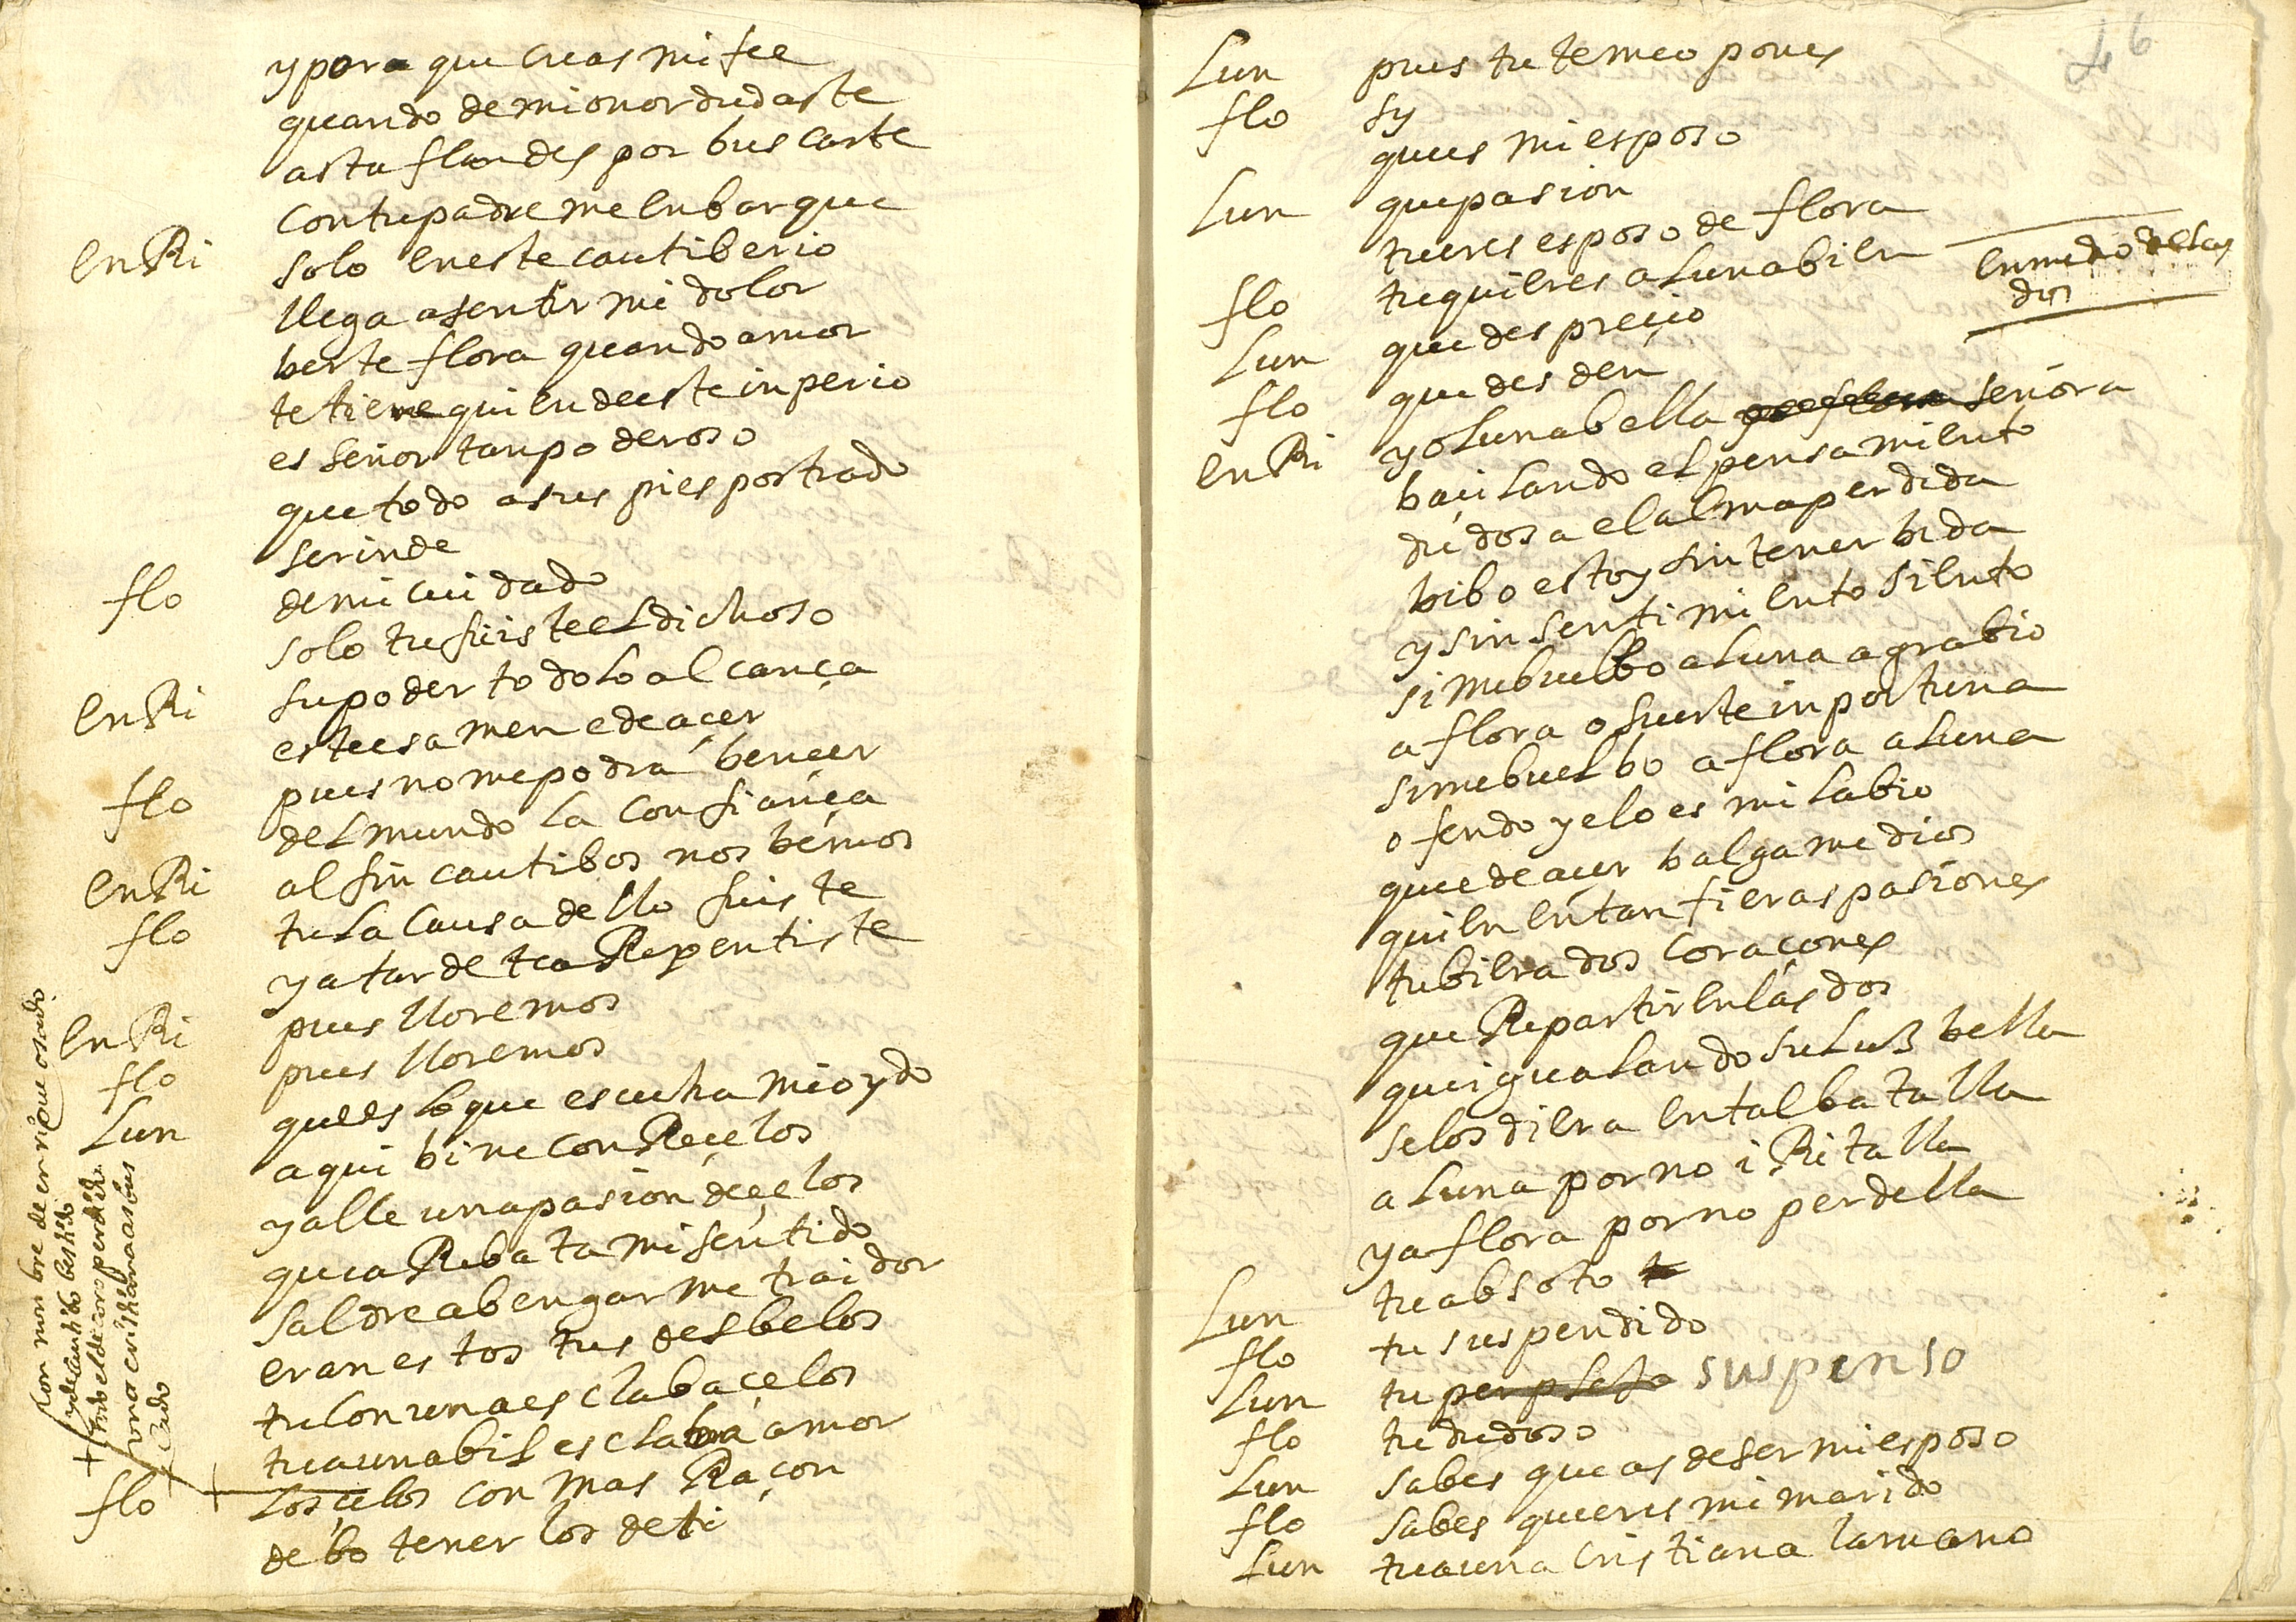 y para que creas mi fee
quando de mi onor dudaste
asta flandes por buscarte
con tu padre me enbarque
enRi solo en este cautiberio
llega a sentir mi dolor
berte flora quando amor
te tiene quien de este inperio
es señor tan poderoso
que todo a sus pies postrado
se rinde
flo de mi cuidado
solo tu fuiste el dichoso
enRi su poder todo lo alcança
este es a mene de açer
flo pues no me podrá bencer
del mundo la confiança
enRi al fin cautibos nos bemos
flo tu la causa dello fuiste
ya tarde te aRepentiste
enRi pues lloremos
flo pues lloremos
Lun que es lo que escucha mi oydo
aqui bine con Reçelos
y alle una pasion de çelos
que aRebata mi sentido
saldre a bengarme traidor
eran estos tus desbelos
tu con una esclaba çelos
tu a una bil esclaba amor
flo los çelos con mas Raçon
debo tenerlos de ti
+ con nonbre de enrique osado
y de cautibo bestido
vna cristiana a sus
46
Lun pues tu te me opones
flo sy
que es mi esposo
Lun que pasion
tu eres esposo de flora
flo tu quieres a Luna bien
en medio de las
dos
Lun que despreçio
flo que desden
enRi yo Luna bella señora
baçilando el pensamiento
dudosa el alma perdida
bibo estoy sin tener bida
y sin sentimiento siento
si me buelbo a Luna agrabio
a flora o suerte inportuna
si me buelbo a flora a Luna
ofendo yelo es mi labio
que de açer balgame dios
quien en tan fieras pasiones
tubiera dos coraçones
que Repartir en las dos
que igualando su Luz bella
se los diera en tal batalla
a Luna por no iRitalla
y a flora por no perdella
Lun tu absoto
flo tu suspendido
Lun tu perplejo suspenso
flo tu dudoso
Lun sabes que as de ser mi esposo
flo sabes que eres mi marido
Lun tu a una cristiana la mano